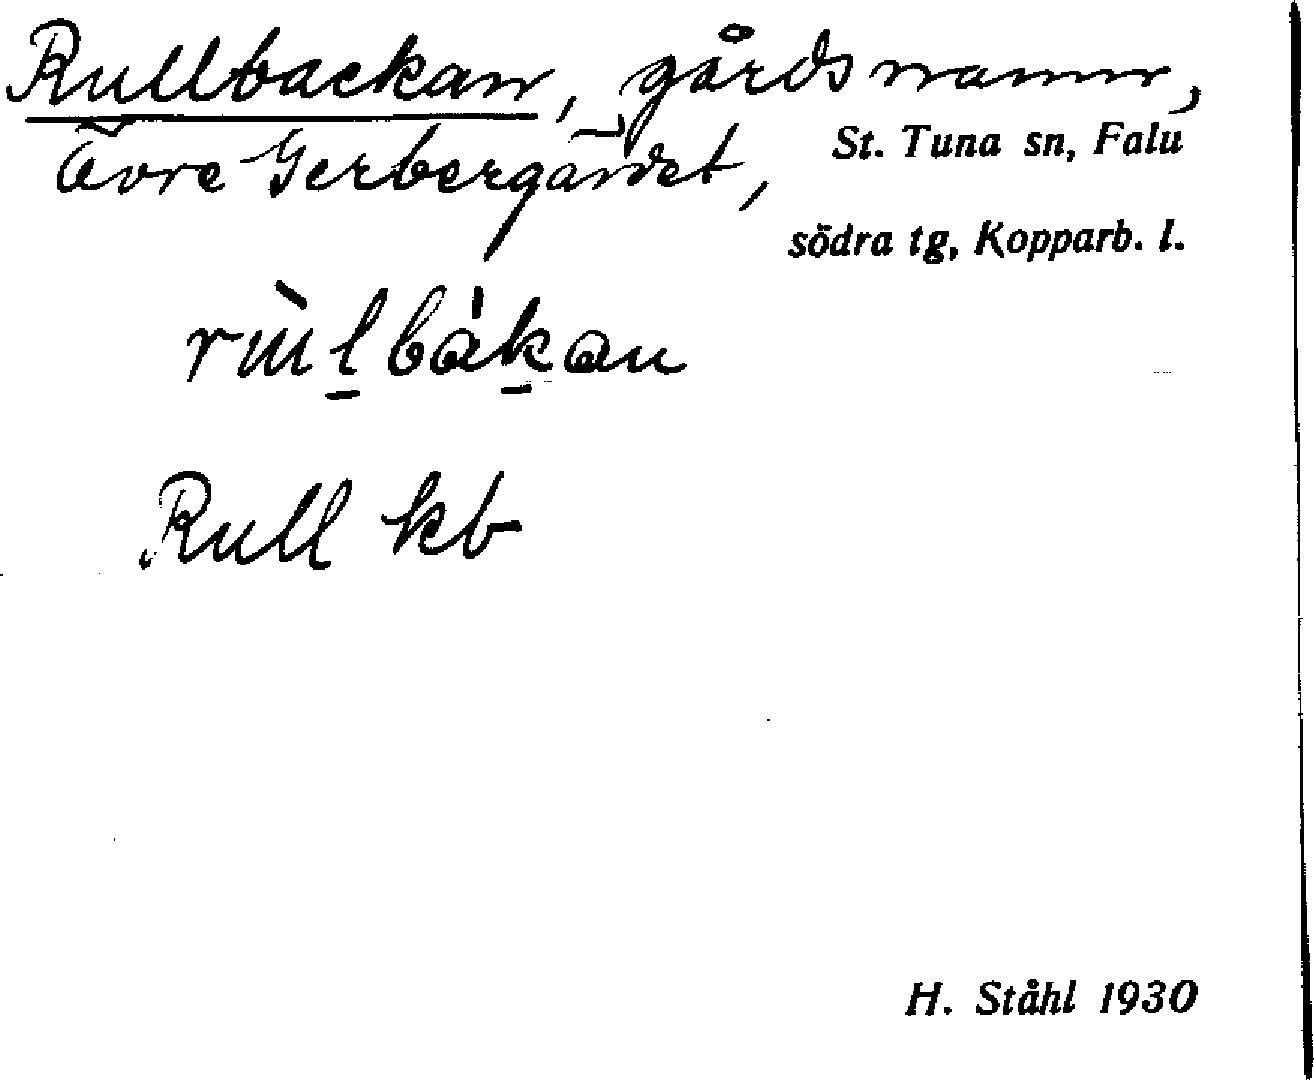 Rullbackan, gårdsnamn,
Övre Gerbergärdet,
St. Tuna sn, Falu
södra tg, Kopparb. l.
Rull kb
H. Ståhl 1930